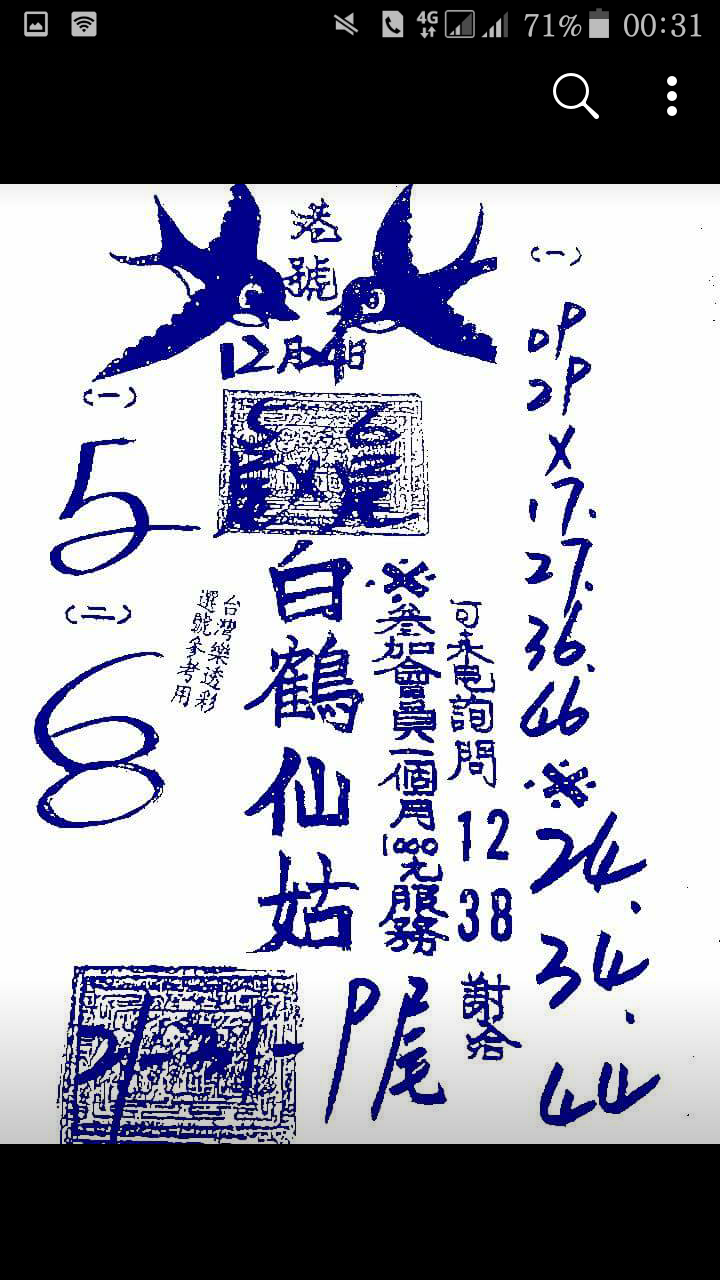 71% 00:31
4G
港號
12月24日
(一)
5
(二)
8
5尾 X 6尾
台灣樂透彩
選號參考用
白鶴仙姑
※參加會員一個月1000元服務
可來電詢問
12
38
謝洽
(一)
X
17.
27.
36.
46
※
24.
34.
44
尾